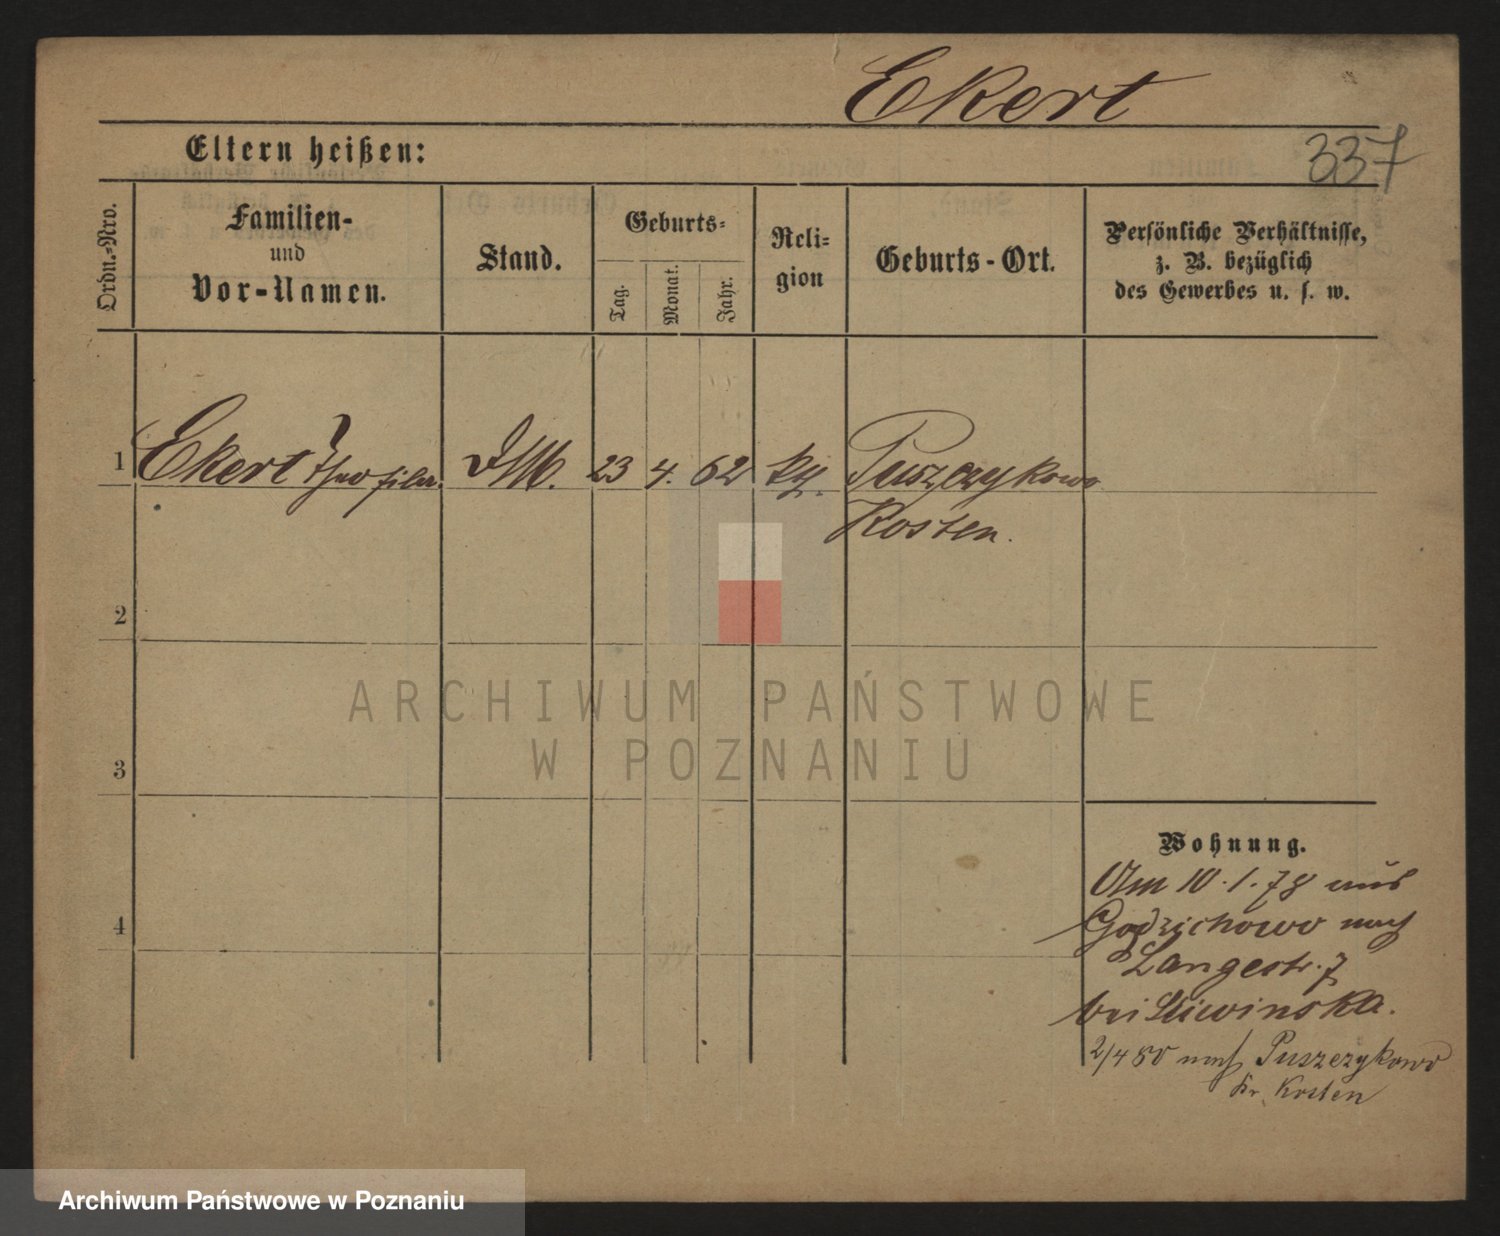 Ekert
337
Eltern heißen:
Ordn.-Nro.
Familien-
und
Vor-Namen.
Stand.
Geburts-
Tag.
Monat.
Jahr.
Reli-
gion
Geburts-Ort.
Persönliche Verhältnisse,
z. B. bezüglich
des Gewerbes u. s. w.
1 Ekert DM. 23 4. 62 kth. Puszczykowo
Kosten.
2
3
4
ARCHIWUM PAŃSTWOWE
W POZNANIU
Wohnung.
Am 10.1.78 aus
Godzichowo nach
Langestr. 7
bei Sliwinska.
2/4 80 nach Puszczykowo
Kr. Kosten
Archiwum Państwowe w Poznaniu